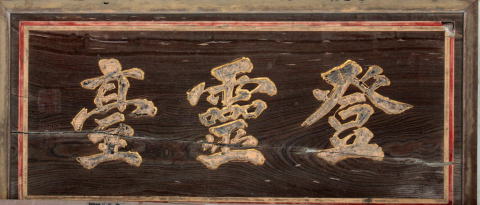 登靈臺